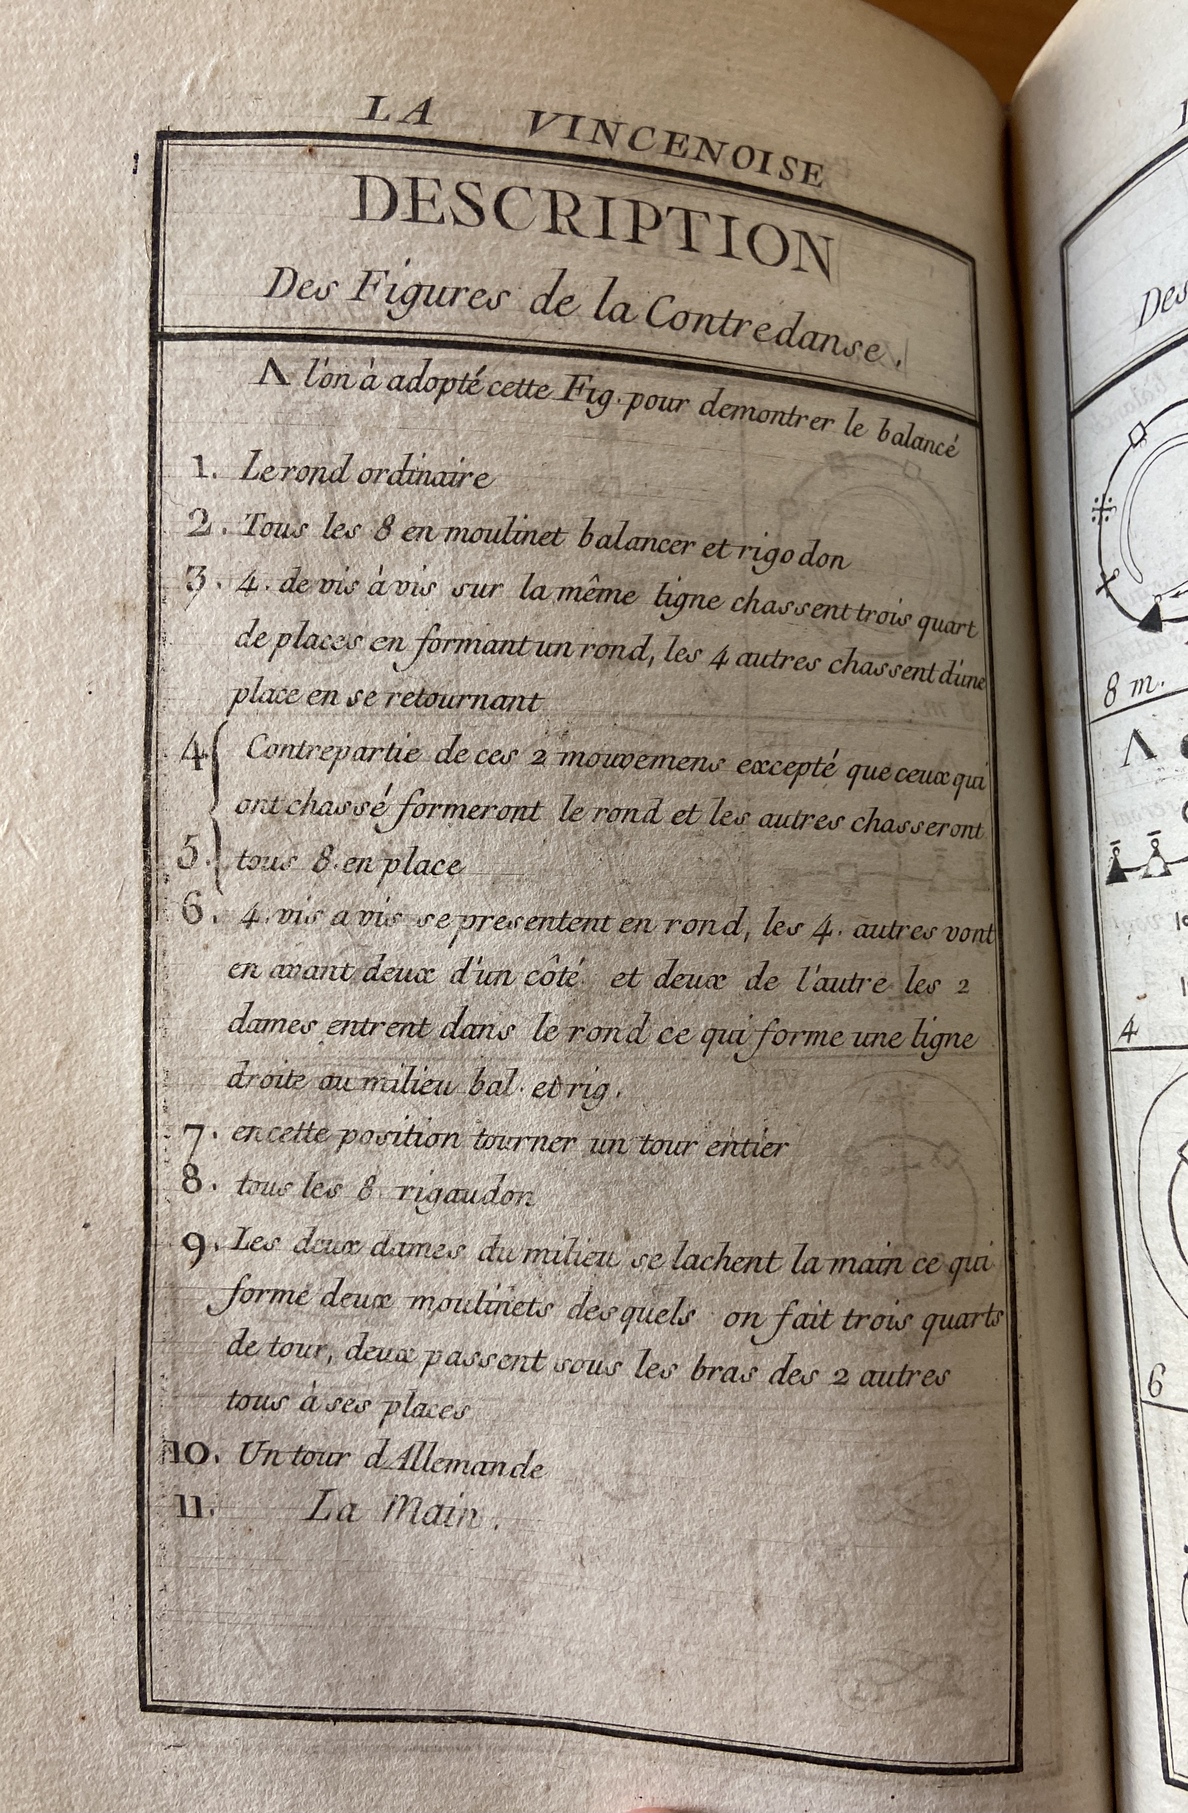 LA VINCENOISE
DESCRIPTION
Des Figures de la Contredanse.
Λ l'on à adopté cette Fig. pour demontrer le balancé
1. Le rond ordinaire
2. Tous les 8 en moulinet balancer et rigodon
3. 4. de vis à vis sur la même ligne chassent trois quart
de places en formant un rond, les 4 autres chassent d'une
place en se retournant
4 Contrepartie de ces 2 mouvemens excepté que ceux qui
ont chassé formeront le rond et les autres chasseront
5. tous 8 en place
6. 4. vis a vis se presentent en rond, les 4. autres vont
en avant deux d'un côté et deux de l'autre les 2
dames entrent dans le rond ce qui forme une ligne
droite au milieu bal. et rig.
7. en cette position tourner un tour entier
8. tous les 8 rigaudon
9. Les deux dames du milieu se lachent la main ce qui
forme deux moulinets desquels on fait trois quarts
de tour, deux passent sous les bras des 2 autres
tous à ses places
10. Un tour d'Allemande
11. La Main.
Des
8 m.
Λ
4
6